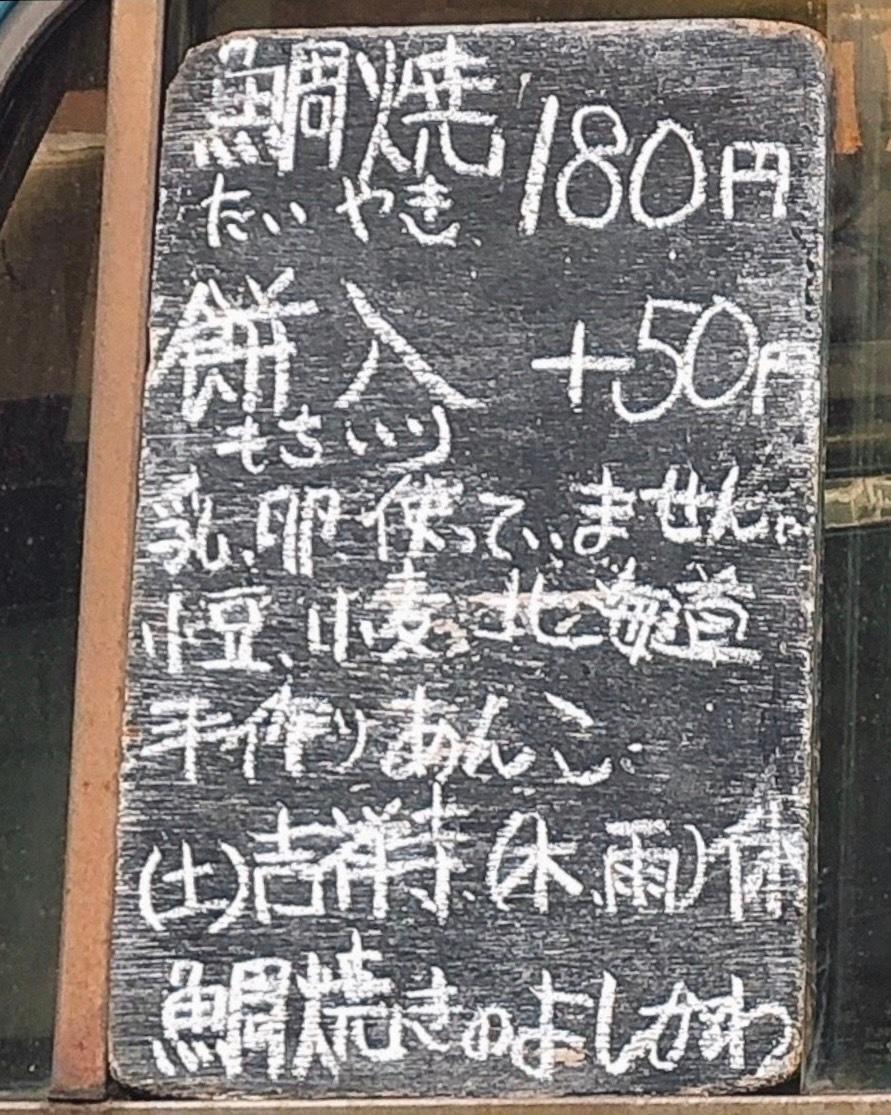 鯛焼 180円
たい やき
餅入 +50円
もち いり
乳、卵、使っていません。
小豆、小麦、北海道
手作りあんこ
(土)吉祥寺、(木、雨)休
鯛焼きのよしかわ